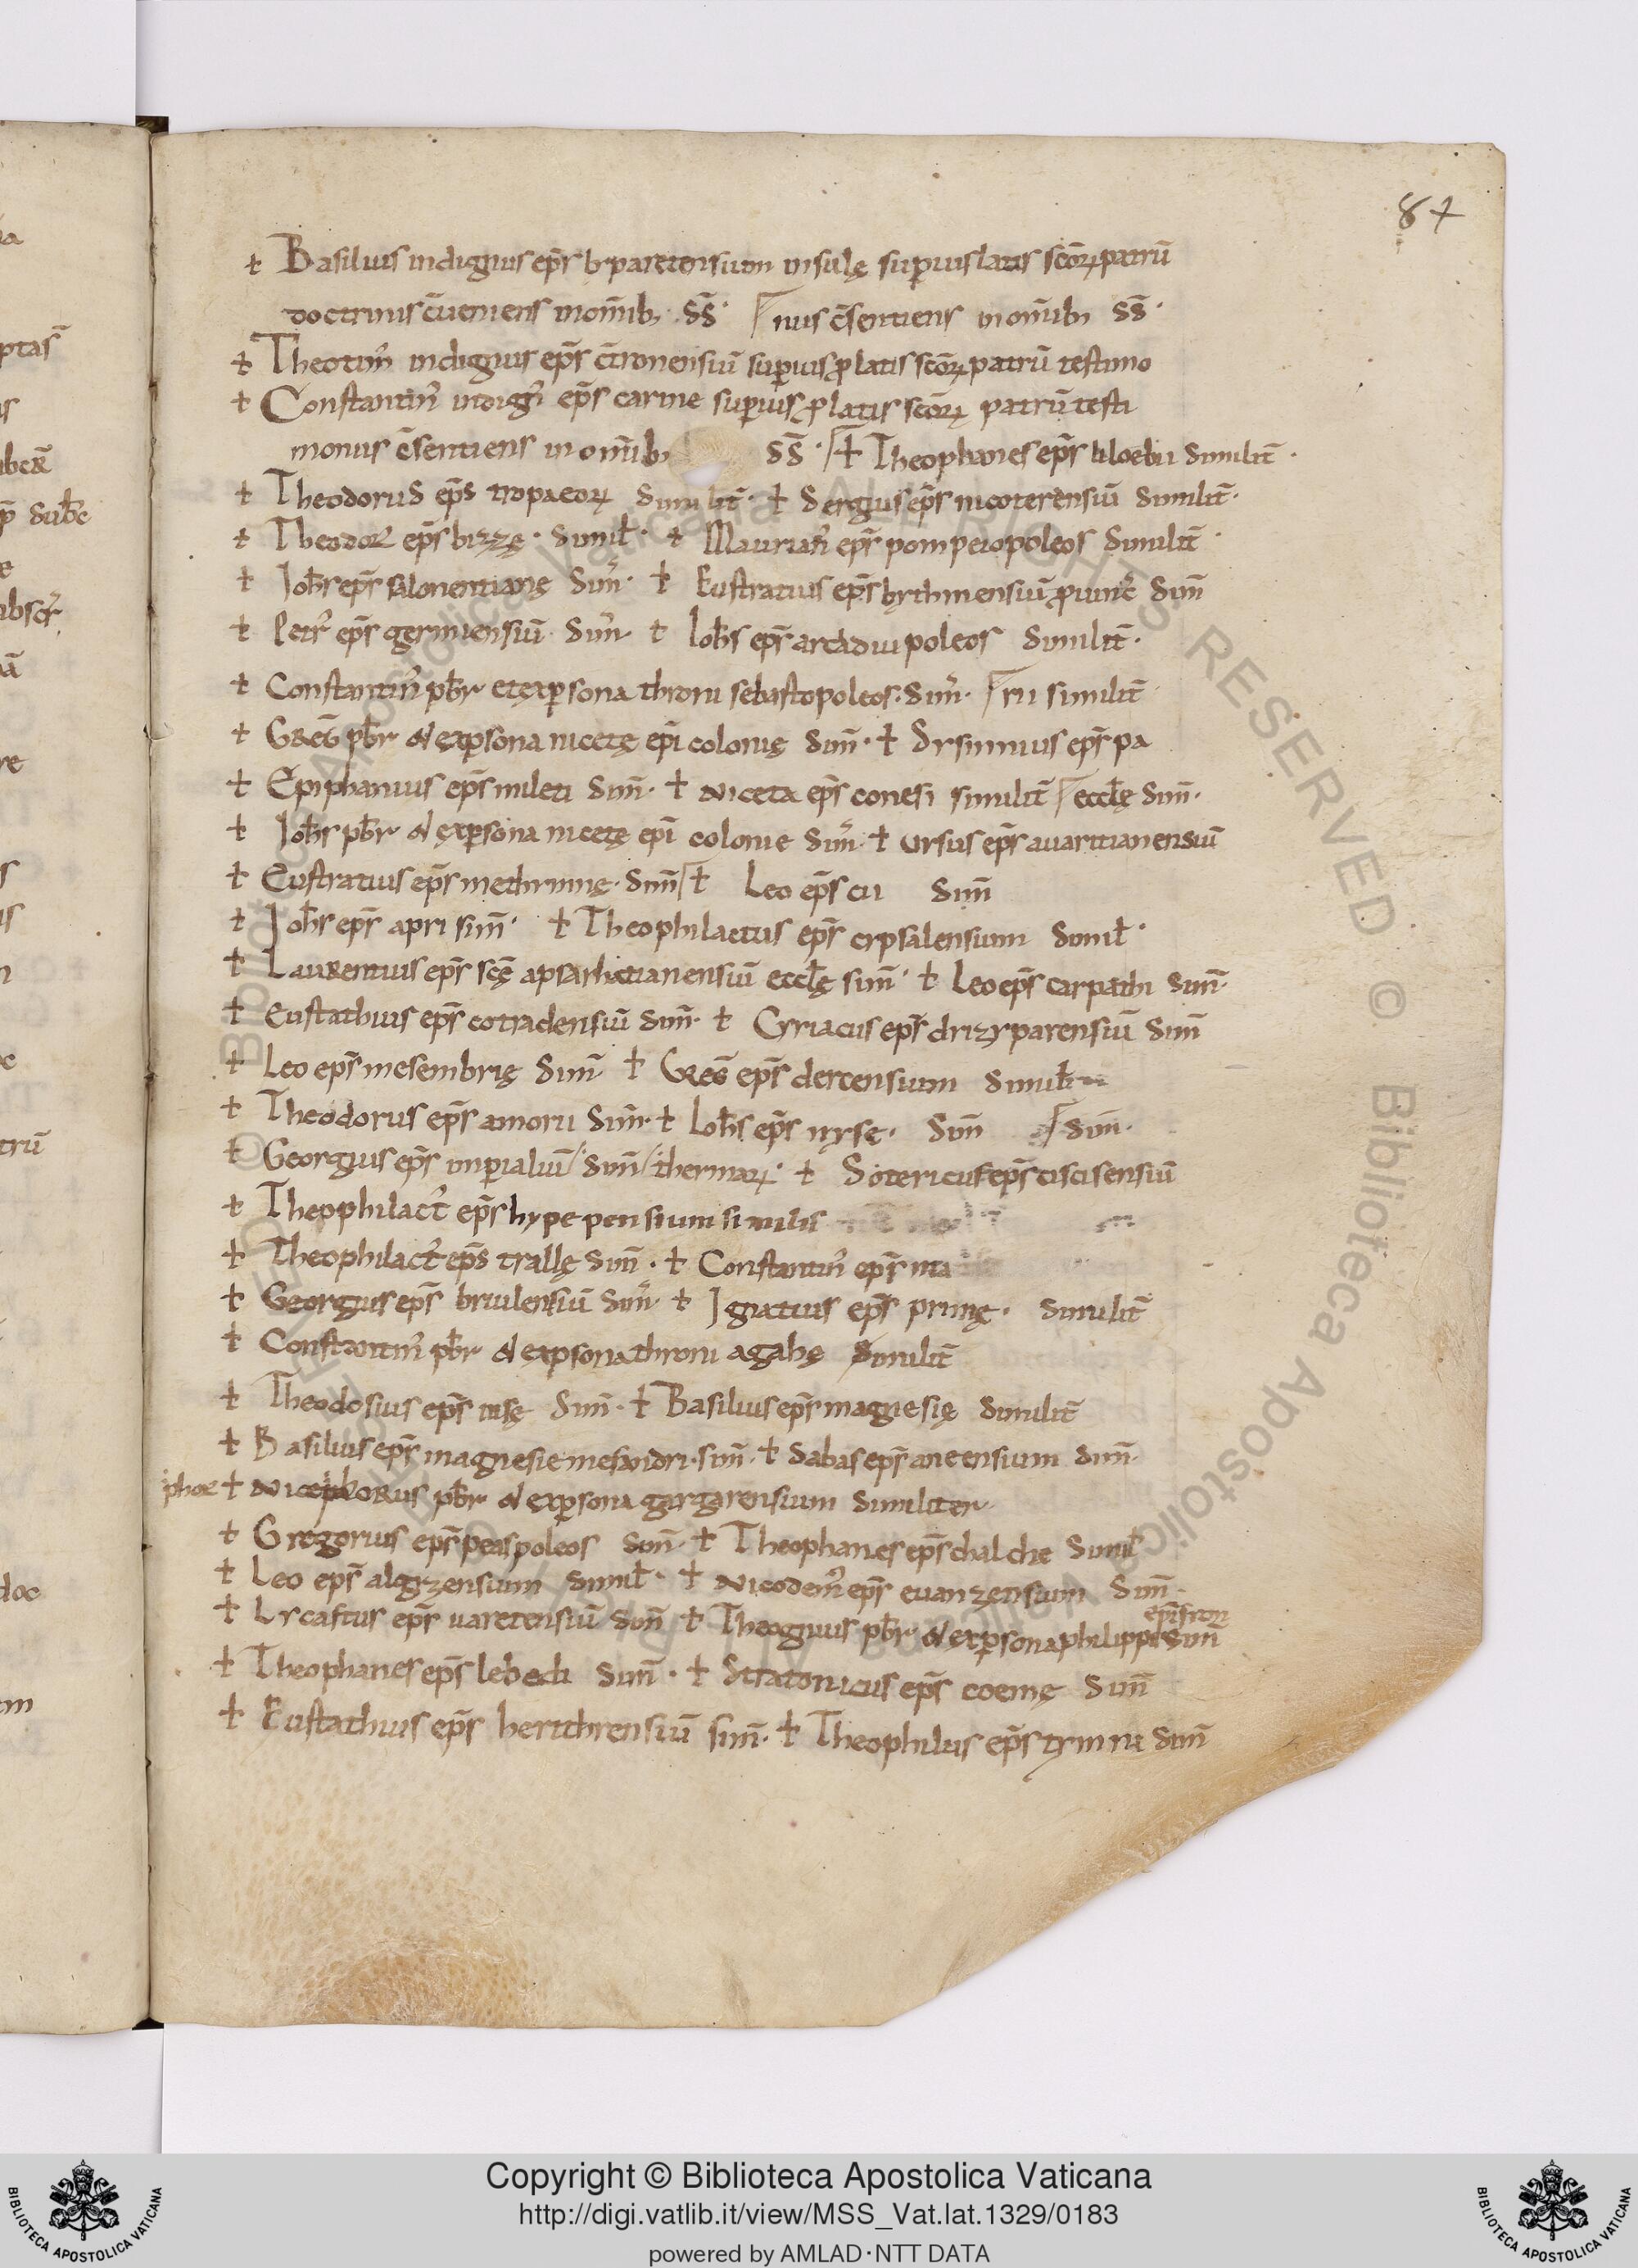 ptas̄
uber̄
p̄ subc̄
re
trū
doc
87
† Basilius indignus ep̄s byparetensium insulę sup̄ius latis sc̄oꝝ patrū
doctrinis c̄ueniens in om̄ib; ss̄· nus c̄sentiens in om̄ib; ss̄·
† Theotim̓ indignus ep̄s c̄tronensiū sup̄ius p̄latis sc̄oꝝ patrū testimo
† Constantin̓ indign̓ ep̄s carine sup̄ius p̄latis sc̄oꝝ patrū testi
moniis c̄sentiens in om̄ib; ss̄· † Theophanes ep̄s liloebii similit̄·
† Theodorus ep̄s tropaeoꝝ similit̄· † Sergius ep̄s nicoterensiū similit̄·
† Theodor̓ ep̄s bizzę· simił· † Maurian̓ ep̄s pompeiopoleos similit̄·
† Ioħs ep̄s salonentianę sim̄· † Eustratius ep̄s bythinensiū p̄uinc̄ sim̄
† Petr̓ ep̄s germiensiū sim̄· † Ioħs ep̄s arcadiupoleos similit̄·
† Constantin̓ pƀr et ex p̄sona throni sebastopoleos· sim̄· rii similit̄
† Greḡ pƀr & ex p̄sona nicetę ep̄i colonię sim̄· † Sysinnius ep̄s pa
† Epiphanius ep̄s mileti sim̄· † Niceta ep̄s conesi similit̄ eccłę sim̄·
† Ioħs pƀr & ex p̄sona nicetę ep̄i colonie sim̄· † Ursus ep̄s auaritianensiū
† Eustratius ep̄s methimnę· sim̄ † Leo ep̄s cii sim̄
† Ioħs ep̄s apri sim̄· † Theophilactus ep̄s cypsalensium simił·
† Laurentius ep̄s sc̄ę apsarhitianensiū eccłę sim̄· † Leo ep̄s carpathi sim̄·
† Eustathius ep̄s cotradensiū sim̄· † Cyriacus ep̄s drizyparensiū sim̄
† Leo ep̄s mesembrię sim̄ † Greḡ ep̄s dercensium simił
† Theodorus ep̄s amorii sim̄· † Ioħs ep̄s nysę· sim̄ sim̄·
† Georgius ep̄s imp̄ialiū sim̄ thermaꝝ· † Sotericus ep̄s ciscisensiū
† Theophilact̓ ep̄s hypepensium similit̄
† Theophilact̓ ep̄s trallę sim̄· † Constantin̓ ep̄s ma
† Georgius ep̄s briulensiū sim̄· † Ignatius ep̄s prinę· similit̄
† Constantin̓ pƀr & ex p̄sona throni agahę similit̄
† Theodosius ep̄s nisę sim̄· † Basilius ep̄s magnesię similit̄
† Basilius ep̄s magnesie meandri· sim̄· † Sabas ep̄s aneensium sim̄·
phor † Nicephorus pƀr & ex p̄sona gargarensium similiter
† Gregorius ep̄s peaspoleos sim̄· † Theophanes ep̄s chalche simił
† Leo ep̄s algyzensium simił· † Nicodem̓ ep̄s euanzensium sim̄·
ep̄iscon
† Lycastus ep̄s uaretensiū sim̄ † Theognius pƀr & ex p̄sona philippi sim̄
† Theophanes ep̄s lebedi sim̄· † Stratonicus ep̄s coemę sim̄
† Eustathius ep̄s herithrensiū sim̄· † Theophilus ep̄s tymni sim̄
© Biblioteca Apostolica Vaticana ALL RIGHTS RESERVED
Copyright © Biblioteca Apostolica Vaticana
http://digi.vatlib.it/view/MSS_Vat.lat.1329/0183
powered by AMLAD·NTT DATA
BIBLIOTECA APOSTOLICA VATICANA
BIBLIOTECA APOSTOLICA VATICANA